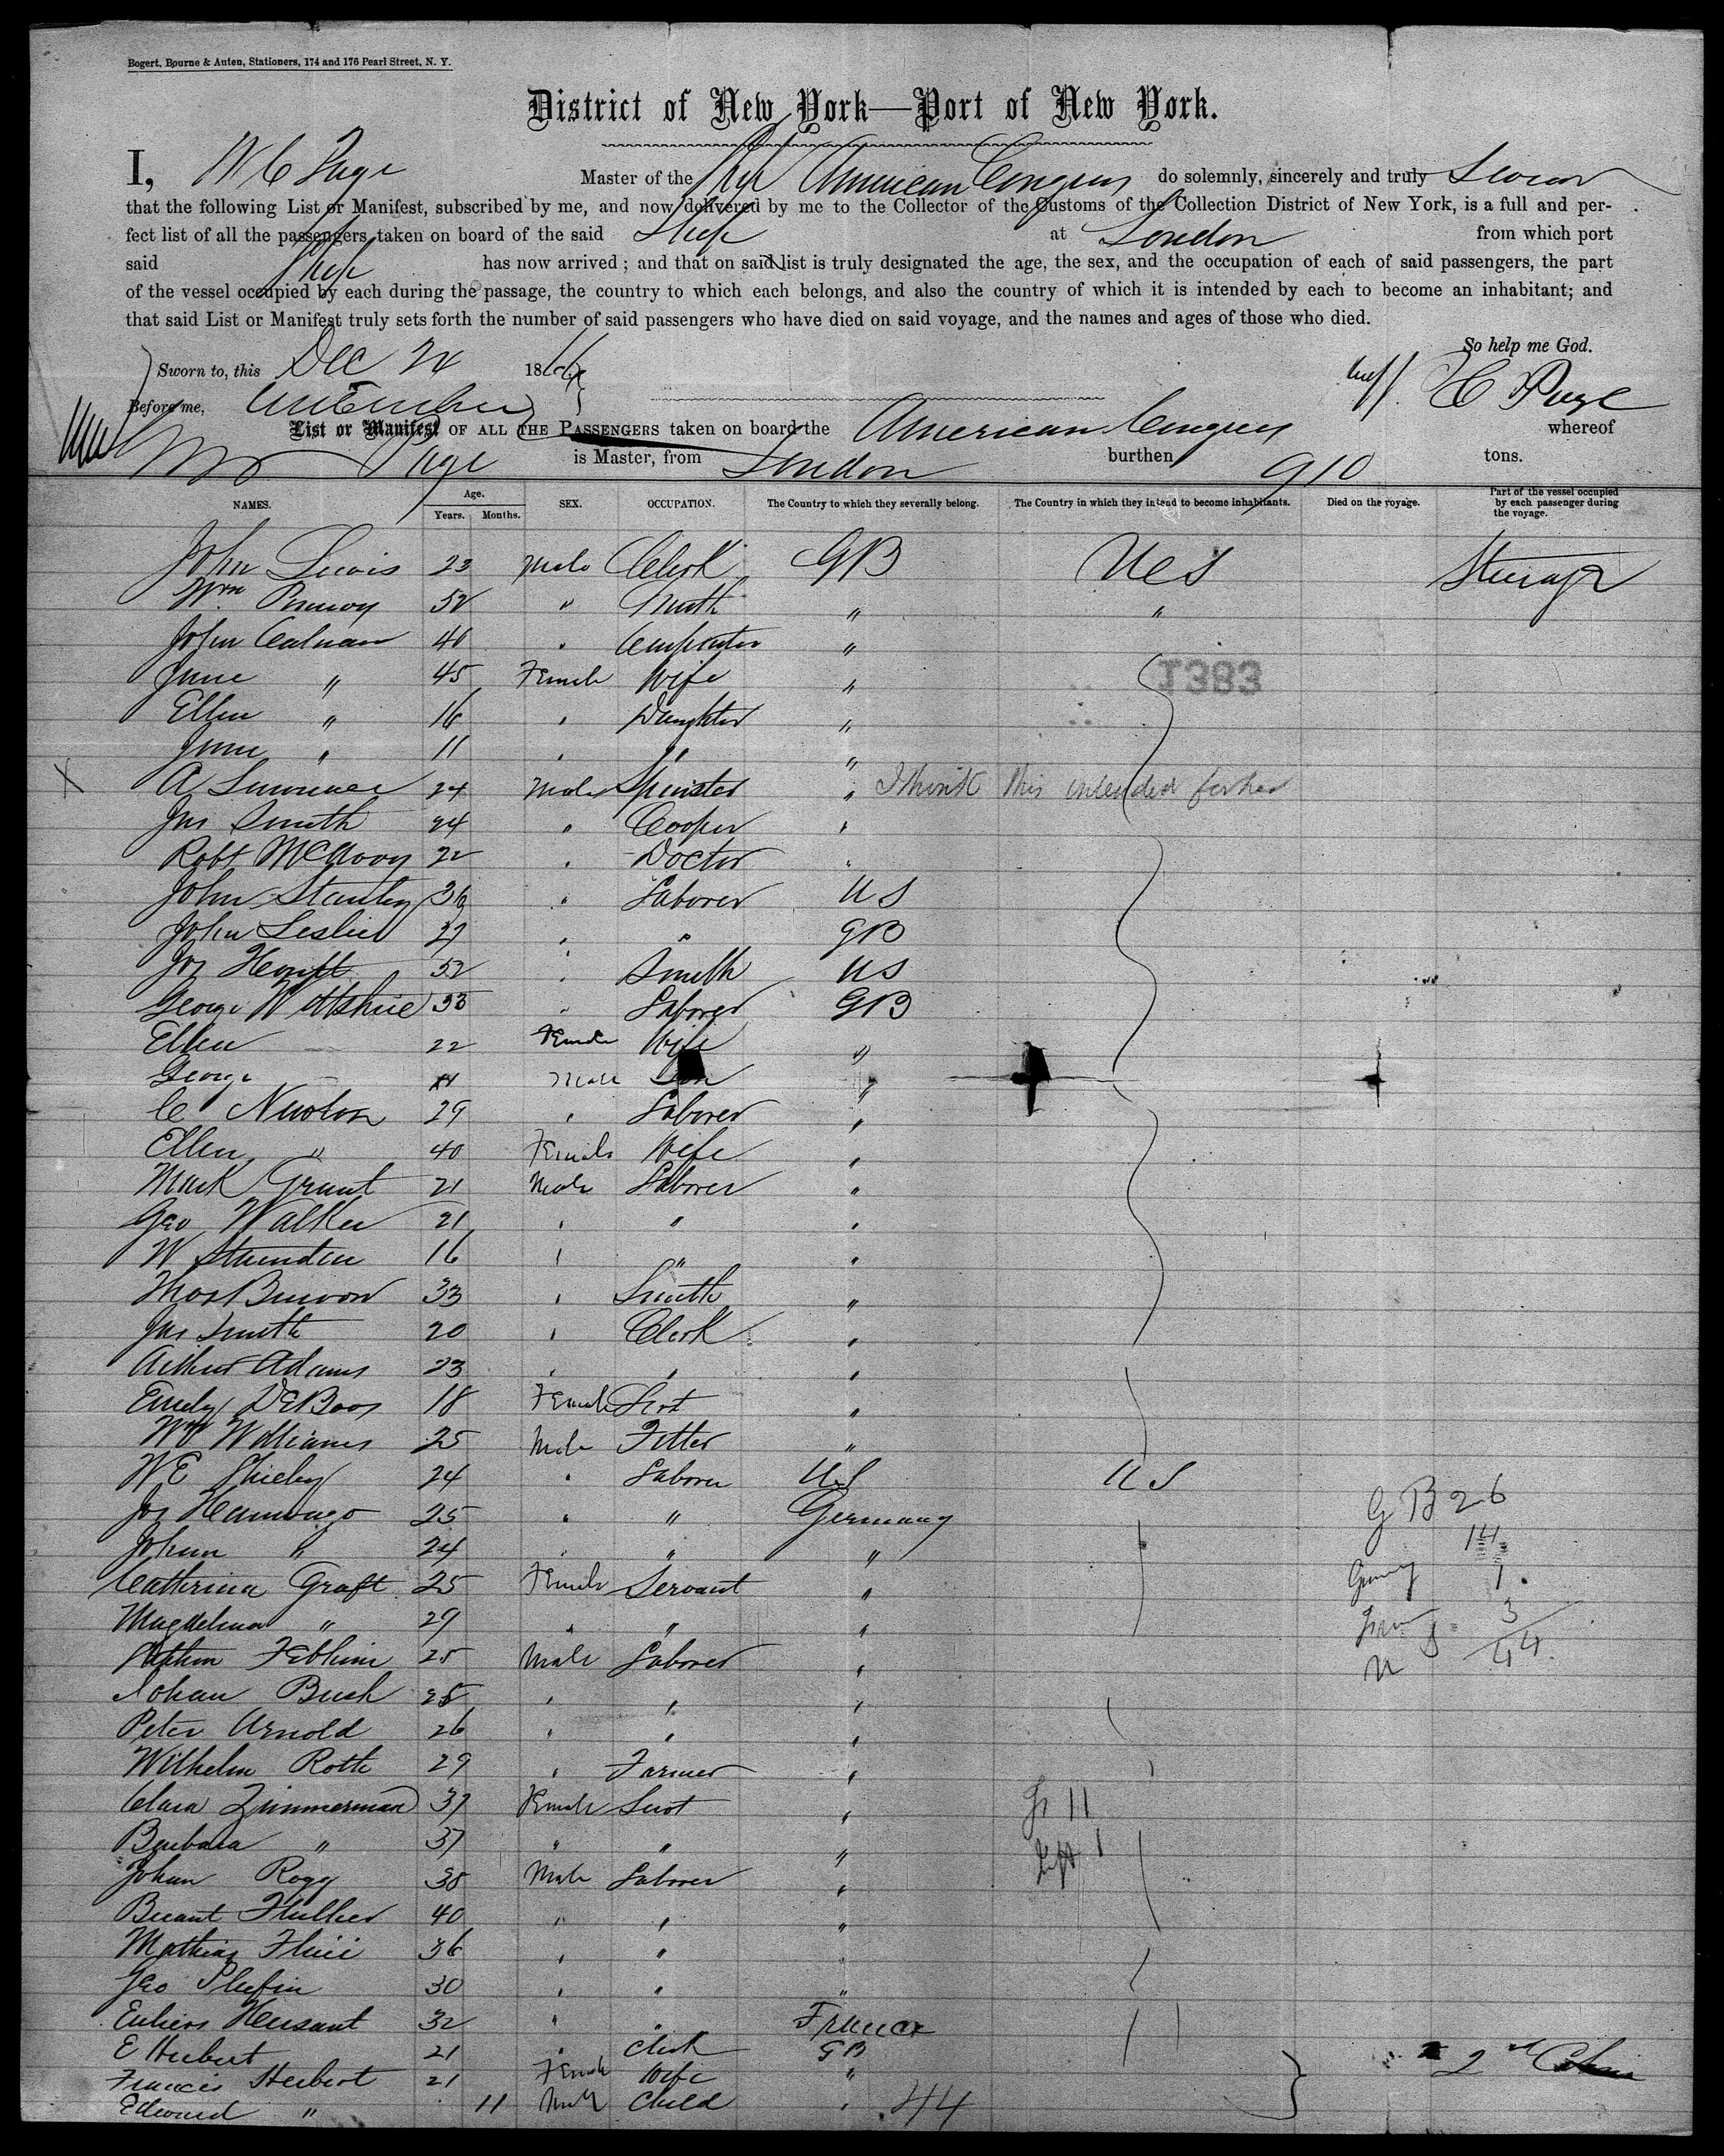 Bogert, Bourne & Auten, Stationers, 174 and 176 Pearl Street, N. Y.
District of New York—Port of New York.
I, W C Page Master of the Ship American Congress do solemnly, sincerely and truly Swear
that the following List or Manifest, subscribed by me, and now delivered by me to the Collector of the Customs of the Collection District of New York, is a full and per-
fect list of all the passengers taken on board of the said Ship at London from which port
said Ship has now arrived; and that on said list is truly designated the age, the sex, and the occupation of each of said passengers, the part
of the vessel occupied by each during the passage, the country to which each belongs, and also the country of which it is intended by each to become an inhabitant; and
that said List or Manifest truly sets forth the number of said passengers who have died on said voyage, and the names and ages of those who died.
So help me God.
Sworn to, this Dec 24 1866
Before me, C Page
List or Manifest OF ALL THE PASSENGERS taken on board the American Congress whereof
Page is Master, from London burthen 910 tons.
NAMES. Age. Years. Months. SEX. OCCUPATION. The Country to which they severally belong. The Country in which they intend to become inhabitants. Died on the voyage. Part of the vessel occupied by each passenger during the voyage.
John Lewis 23 Male Clerk GB US Steerage
Wm 52 " Smith " "
John Calnan 40 " Carpenter "
Jane " 45 Female Wife "
1383
Ellen " 16 " Daughter "
Jane " 11 " " "
X A 24 Male Spinster " I think this intended for her
Jas Smith 24 " Cooper "
Robt McAvoy 22 " Doctor "
John Stanley 36 " Laborer US
John Leslie 37 " " GB
Jos 52 " Smith US
George Wiltshire 33 " Laborer GB
Ellen 22 Female Wife "
George 11 Male Son "
C Newton 29 " Laborer "
Ellen " 40 Female Wife "
Mark Grant 21 Male Laborer "
Geo Walker 21 " " "
W 16 " " "
Thos 33 " Smith "
Jas Smith 20 " Clerk "
Arthur Adams 23 " " "
Emily DeBoos 18 Female Servt "
Wm Williams 25 Male Fitter "
W E 24 " Laborer US US
Jos 25 " " Germany
Johan " 24 " " "
Catherina Graft 25 Female Servant "
Magdelina " 29 " " "
25 Male Laborer "
Johan Bush 25 " " "
Peter Arnold 26 " " "
Wilhelm Roth 29 " Farmer "
Clara Zimmerman 37 Female Servt "
Barbara " 37 " " "
Johan Rogg 38 Male Laborer "
40 " " "
Mathias 36 " "
Geo 30 " " "
32 " " France
E Herbert 21 " Clerk GB 2nd Cabin
Francis Herbert 21 Female Wife "
Edward " 11 Male Child " 44
GB 26
14
Germy 1
3
44
11
1